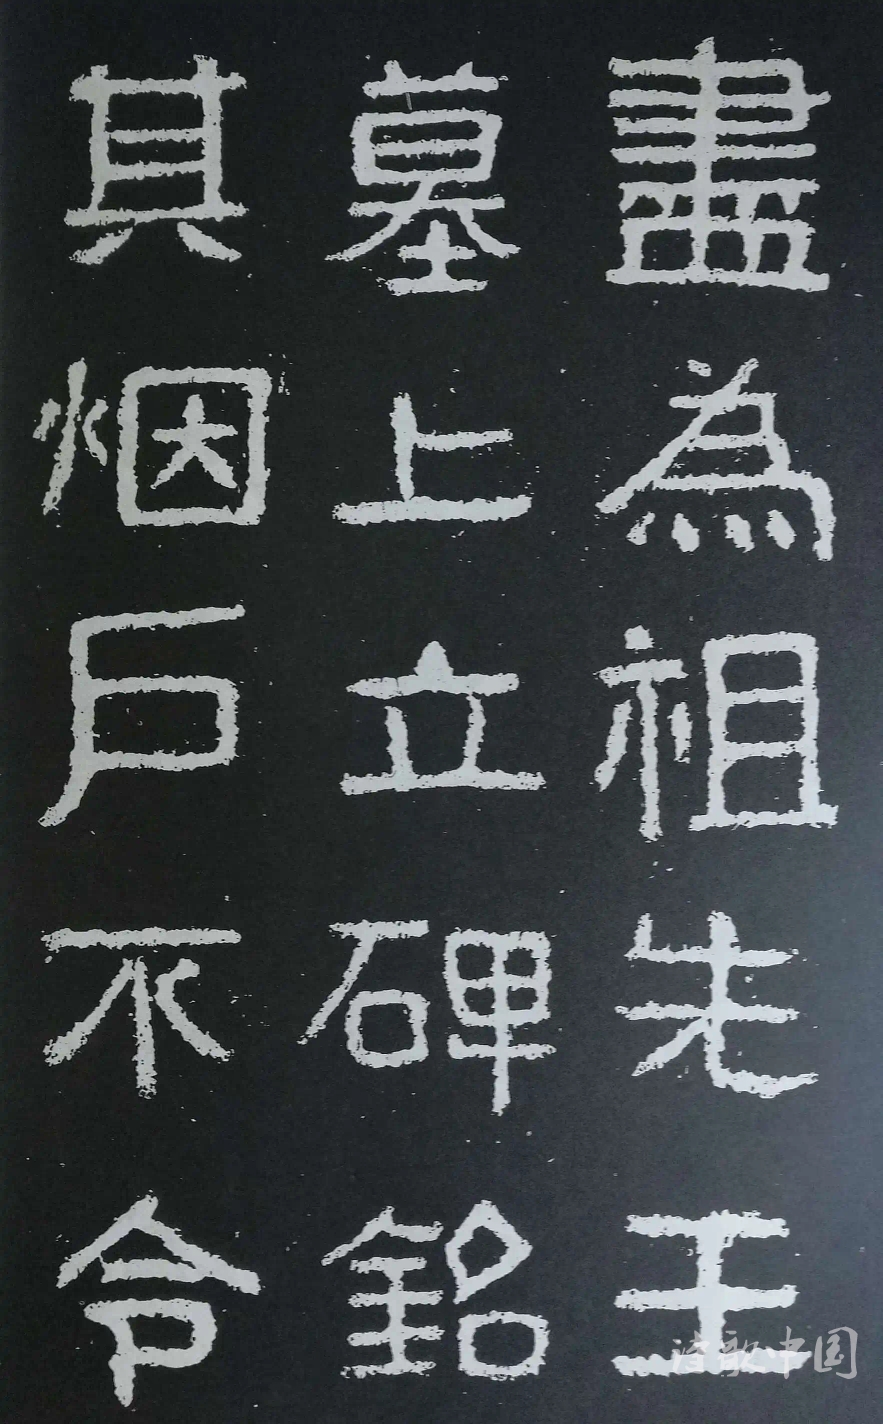 盡為祖先王
墓上立碑銘
其烟戶不令
诗歌中国